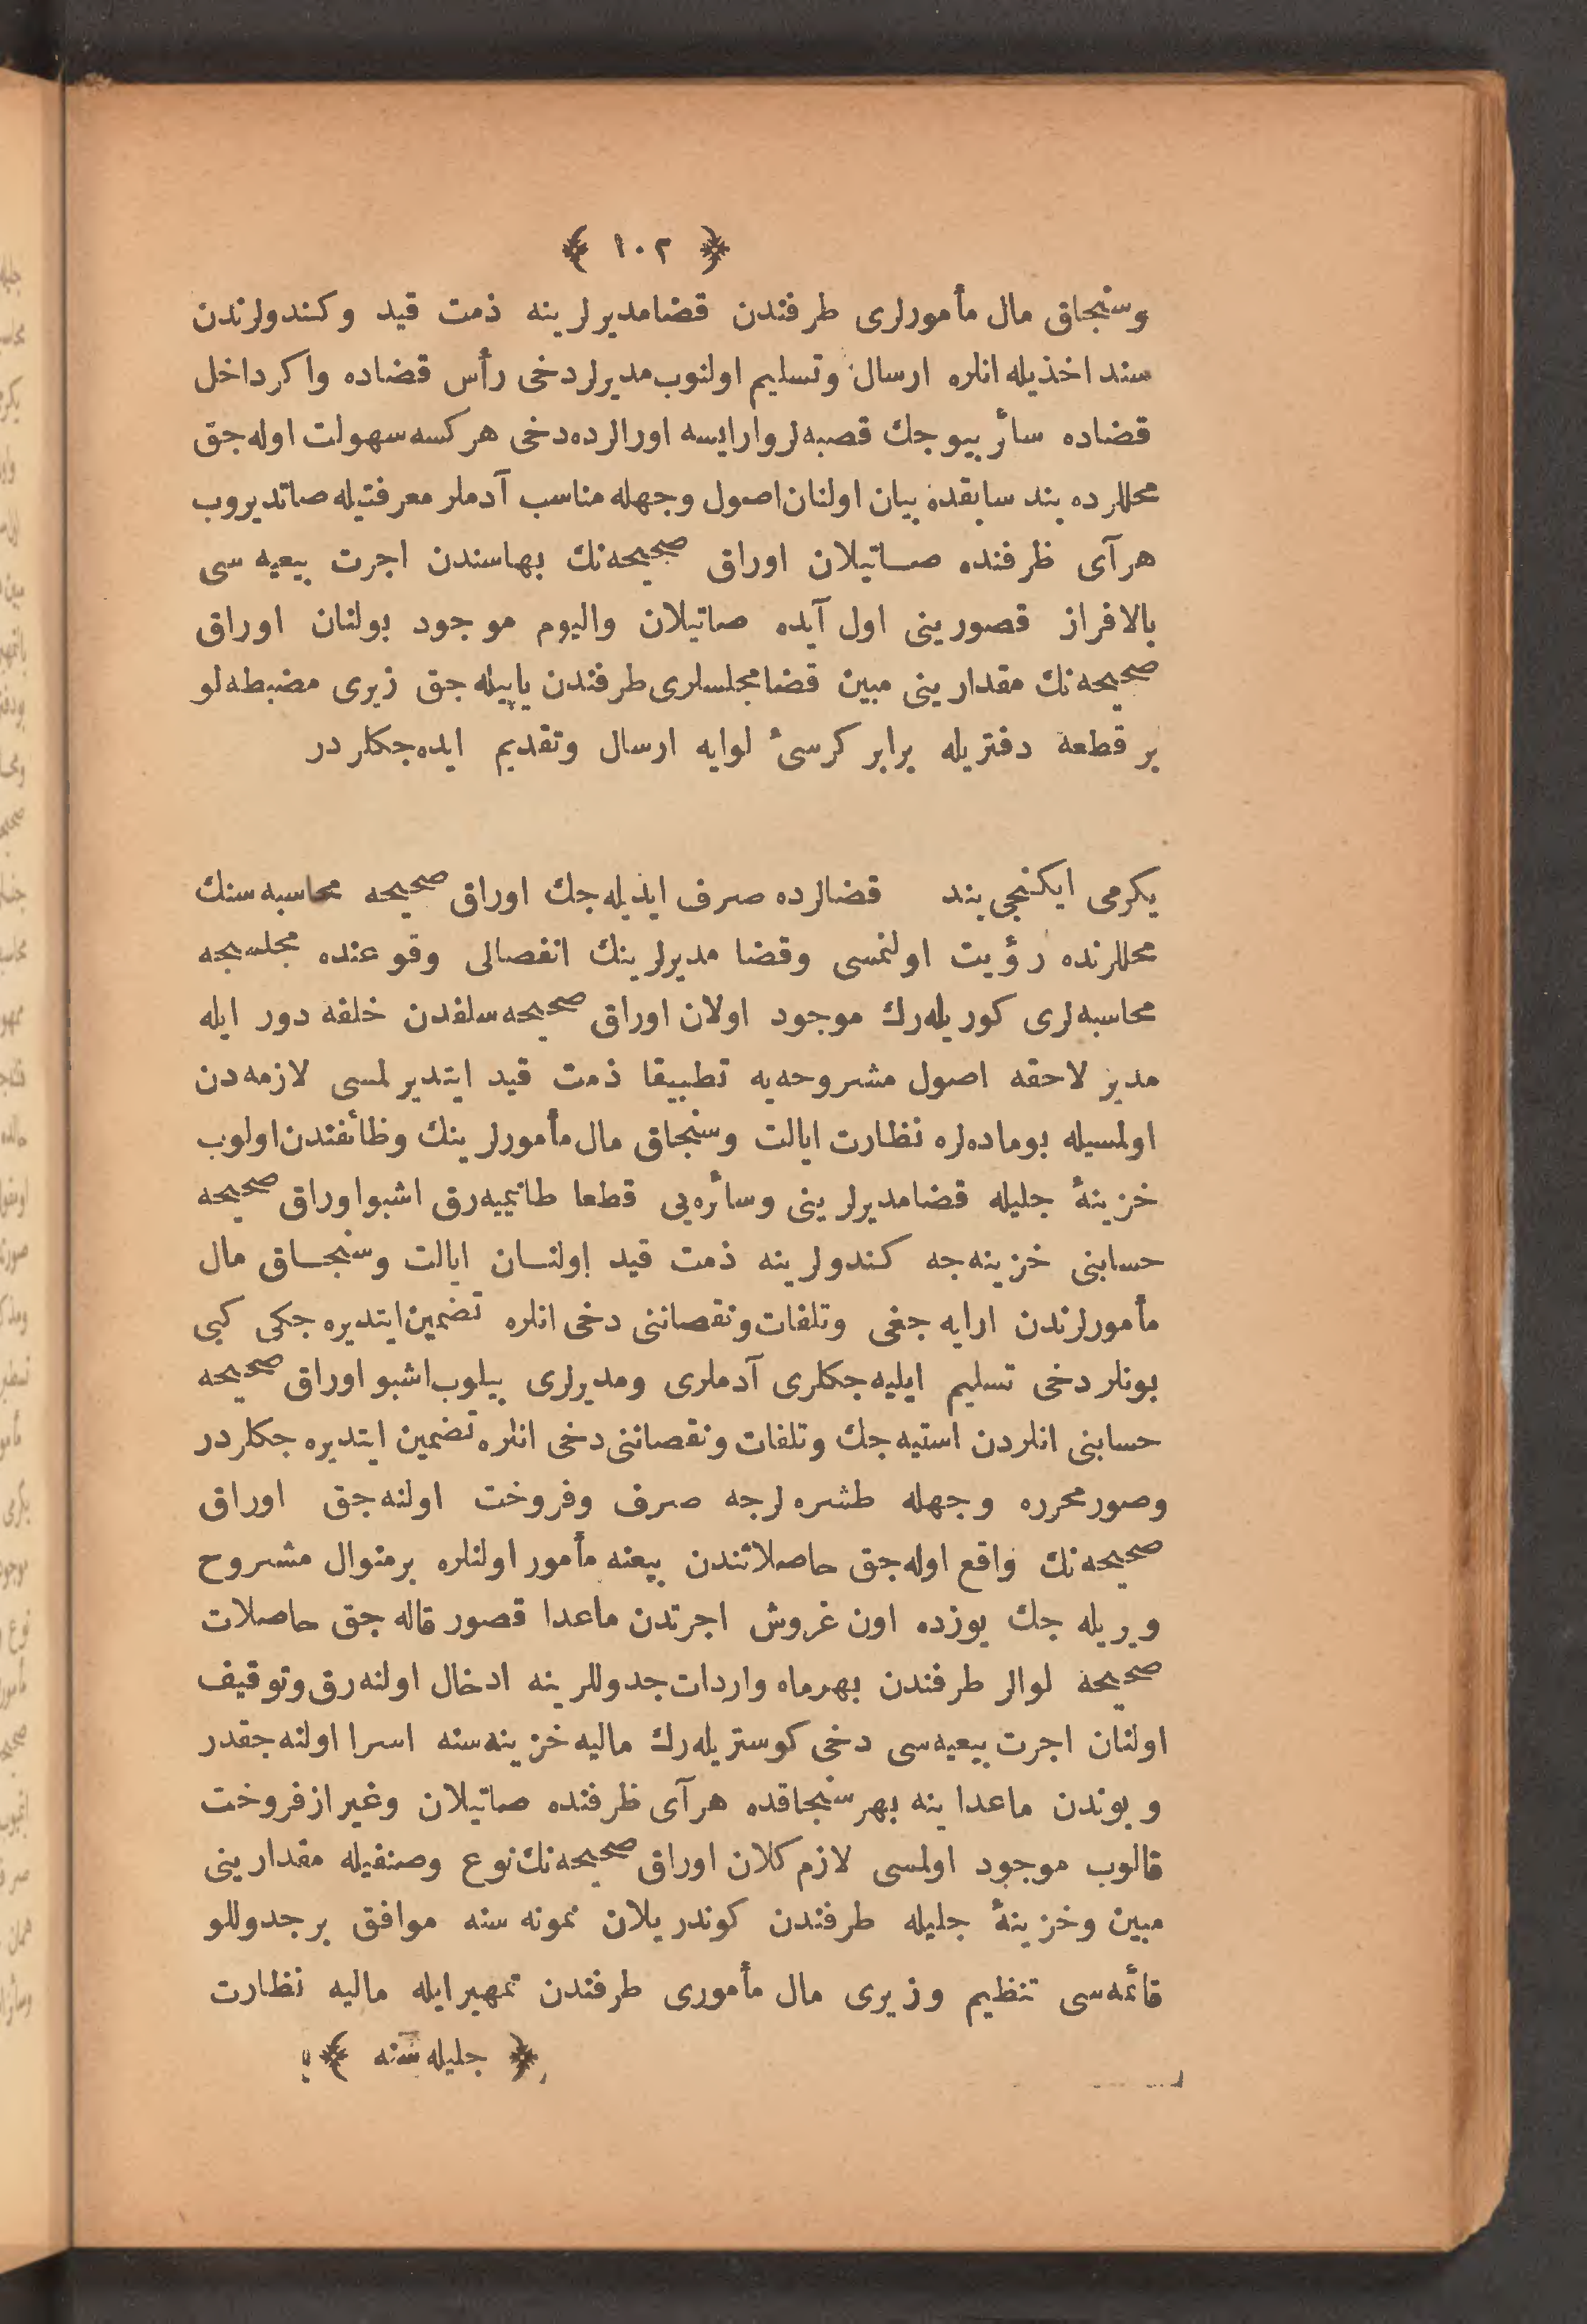 ﴿ ١٠٢ ﴾
وسنجاق مال مأمورلری طرفندن قضامدیرلرینه ذمت قید وکندولرندن
سند اخذیله انلره ارسال وتسلیم اولنوب مدیرلردخی رأس قضاده واکر داخل
قضاده سائر بیوجك قصبه‌لر وارایسه اورالرده‌دخی هرکسه سهولت اوله‌جق
محللرده بند سابقده بیان اولنان اصول وجهله مناسب آدملر معرفتیله صاتدیروب
هرآی ظرفنده صاتیلان اوراق صحیحه‌نك بهاسندن اجرت بیعیه‌سی
بالافراز قصورینی اول آیده صاتیلان والیوم موجود بولنان اوراق
صحیحه‌نك مقدارینی مبین قضامجلسلری طرفندن یاپیله‌جق زیری مضبطه‌لو
برقطعه دفتریله برابر کرسئ لوایه ارسال وتقدیم ایده‌جکلردر
یکرمی ایکنجی بند قضالرده صرف ایدیله‌جك اوراق صحیحه محاسبه‌سنك
محللرنده رؤیت اولنمسی وقضا مدیرلرینك انفصالی وقوعنده مجلسجه
محاسبه‌لری کوریله‌رك موجود اولان اوراق صحیحه سلفدن خلفه دور ایله
مدیر لاحقه اصول مشروحه‌یه تطبیقا ذمت قید ایتدیرلمسی لازمه‌دن
اولمسیله بوماده‌لره نظارت ایالت وسنجاق مال مأمورلرینك وظائفندن اولوب
خزینهٔ جلیله قضامدیرلرینی وسائره‌یی قطعا طانیمیه‌رق اشبواوراق صحیحه
حسابنی خزینه‌جه کندولرینه ذمت قید اولنان ایالت وسنجاق مال
مأمورلرندن ارایه‌جغی وتلفات ونقصاننی دخی انلره تضمین ایتدیره‌جکی کبی
بونلردخی تسلیم ایلیه‌جکلری آدملری ومدیرلری بیلوب اشبو اوراق صحیحه
حسابنی انلردن استیه‌جك وتلفات ونقصاننی دخی انلره تضمین ایتدیره‌جکلردر
وصور محرره وجهله طشره‌لرجه صرف وفروخت اولنه‌جق اوراق
صحیحه‌نك واقع اوله‌جق حاصلاتندن بیعنه مأمور اولنلره برمنوال مشروح
ویریله‌جك یوزده اون غروش اجرتدن ماعدا قصور قاله‌جق حاصلات
صحیحه لوالر طرفندن بهرماه واردات جدوللرینه ادخال اولنه‌رق وتوقیف
اولنان اجرت بیعیه‌سی دخی کوستریله‌رك مالیه خزینه‌سنه اسرا اولنه‌جقدر
وبوندن ماعدا ینه بهرسنجاقده هرآی ظرفنده صاتیلان وغیر ازفروخت
قالوب موجود اولمسی لازم کلان اوراق صحیحه‌نك نوع وصنفیله مقدارینی
مبین وخزینهٔ جلیله طرفندن کوندریلان نمونه‌سنه موافق برجدوللو
قائمه‌سی تنظیم وزیری مال مأموری طرفندن تمهیرایله مالیه نظارت
﴿ جلیله‌سنه ﴾